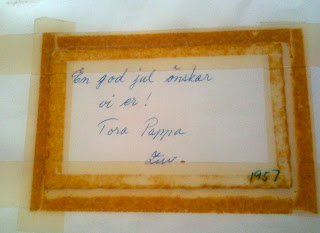 En god jul önskar
vi er!
Tora Pappa
Liv.
1957